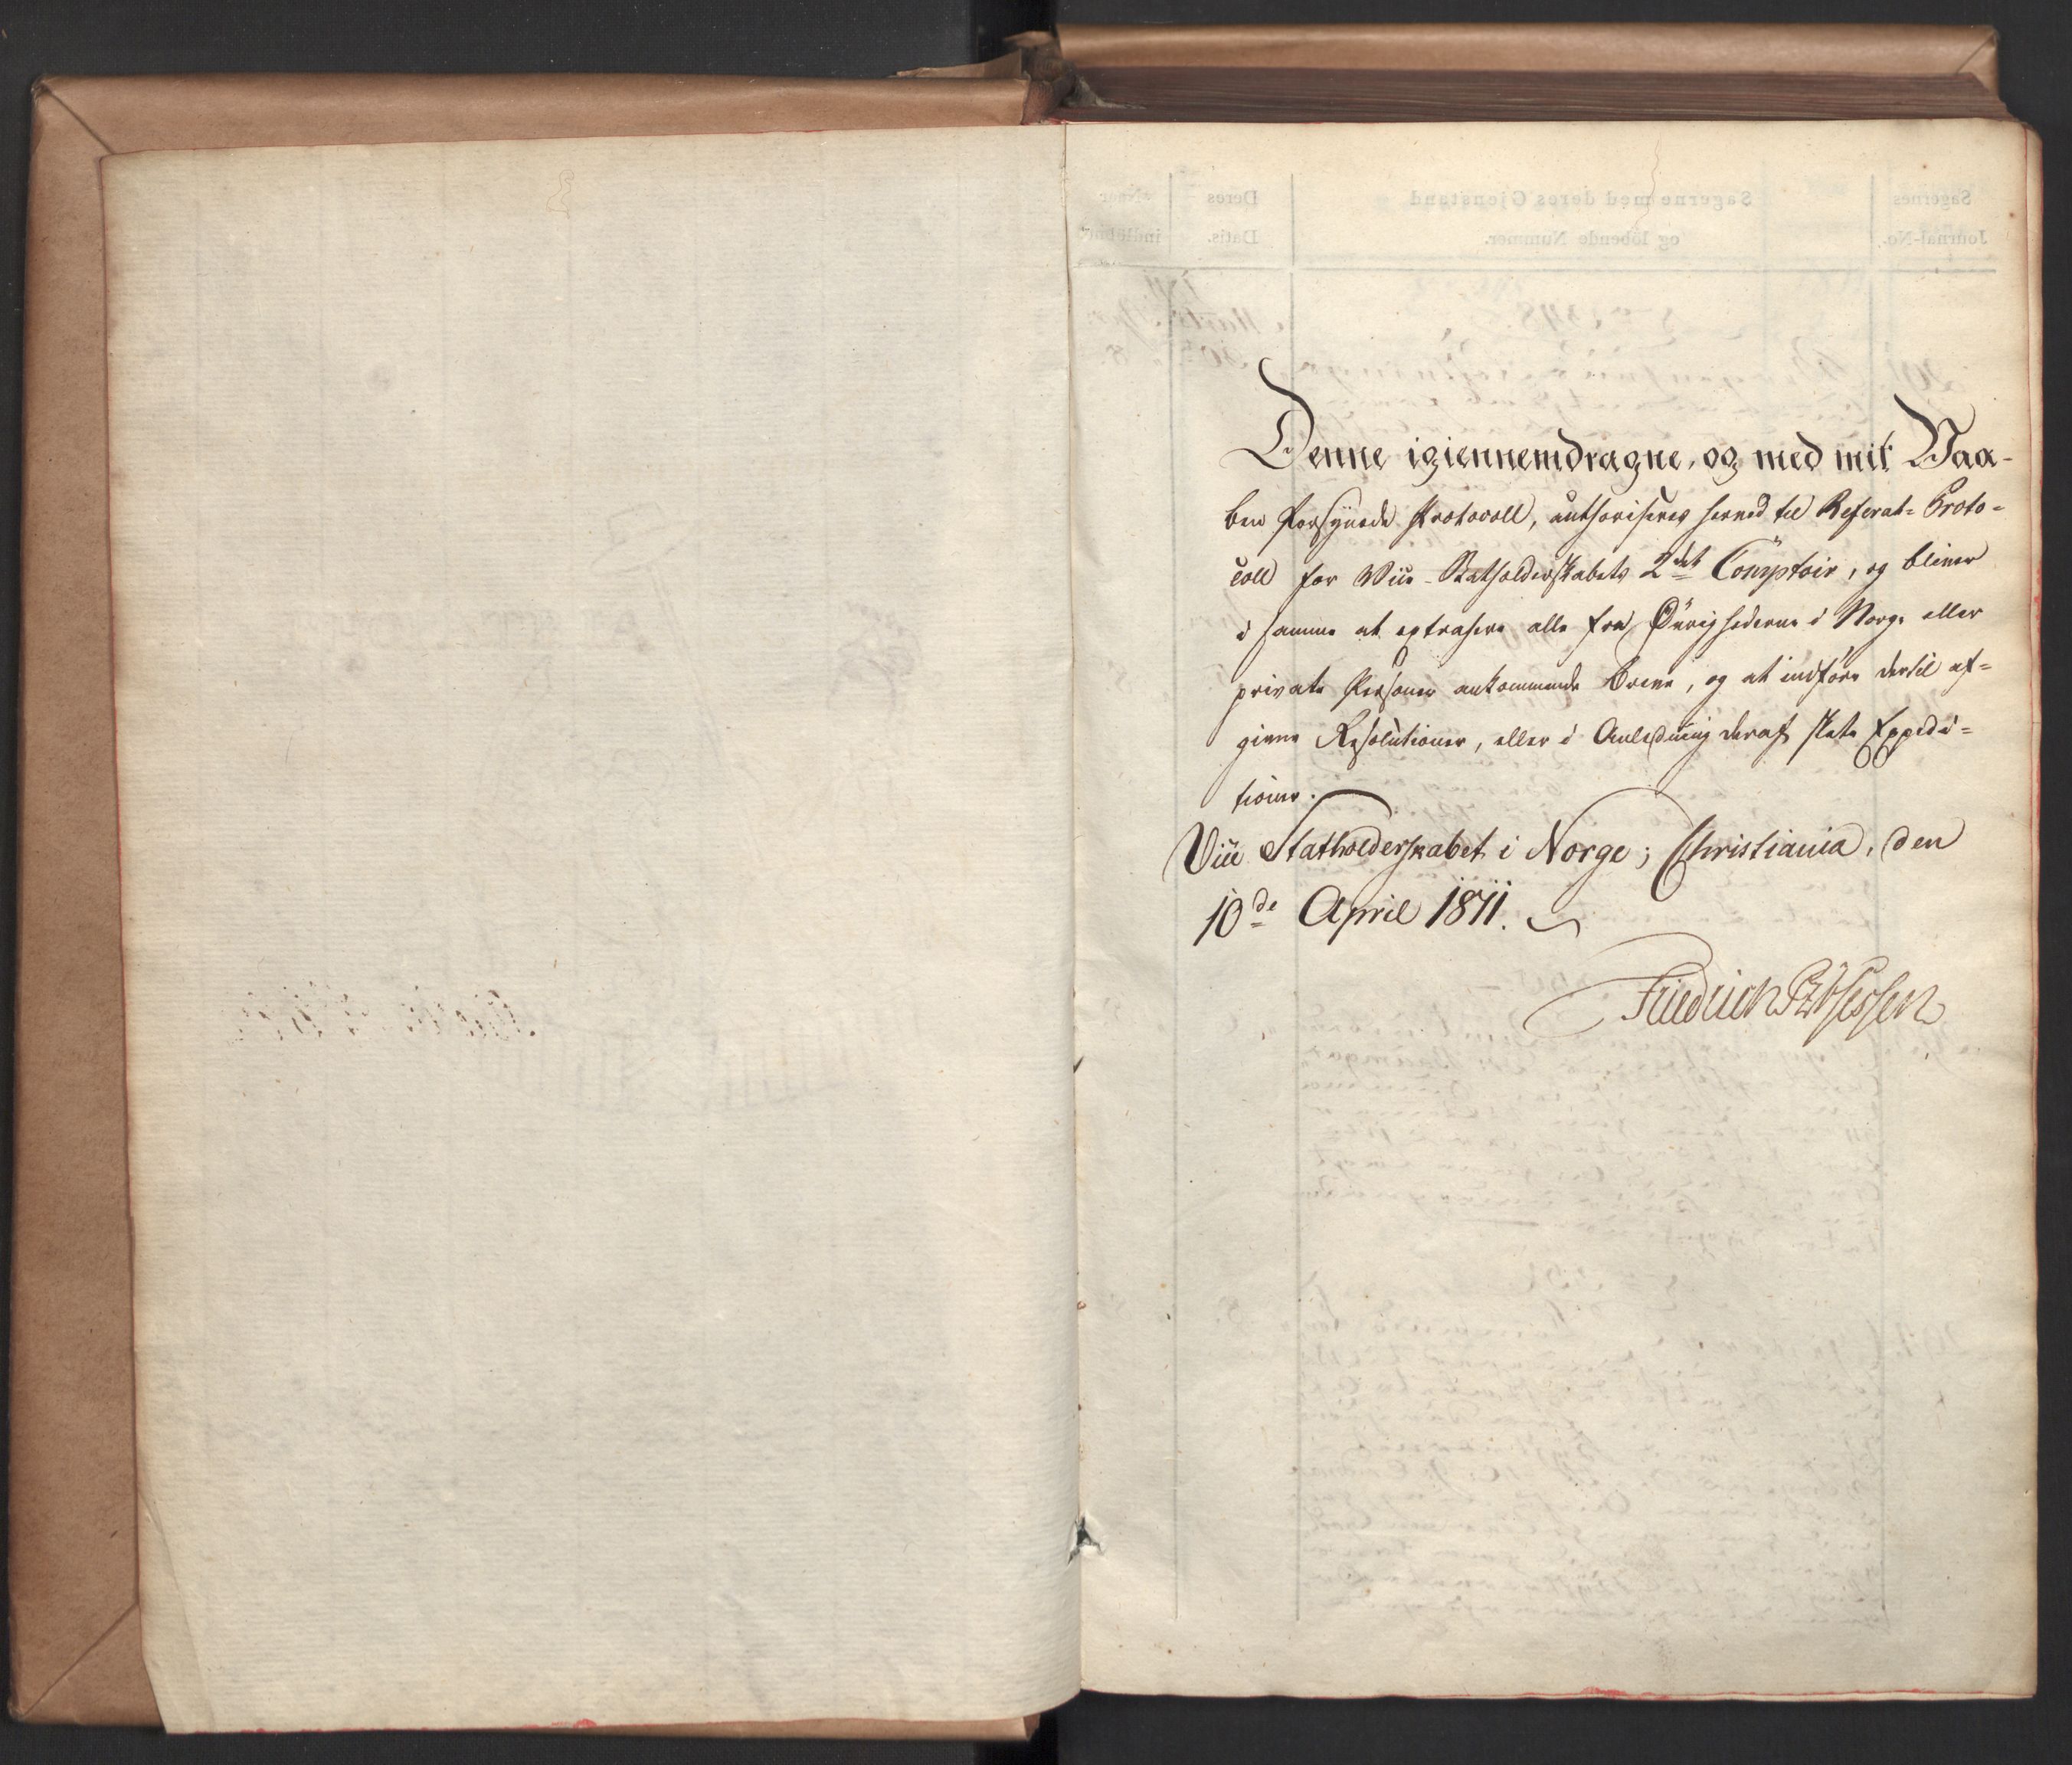 Denne igiennemdragne, og med mit Vaa-
ben forsynede Protocoll, authoriseres herved til Referat-Proto-
coll for Vice-Statholderskabets 2det Comptoir, og bliver
i samme at extrahere alle fra Øvrighederne i Norge eller
private Personer ankommende Breve, og at indføre dertil af-
givne Resolutioner, eller i Anledning deraf skete Expedi-
tioner.
Vice Statholderskabet i Norge; Christiania, den
10de April 1811.
Friedrich PzHessen